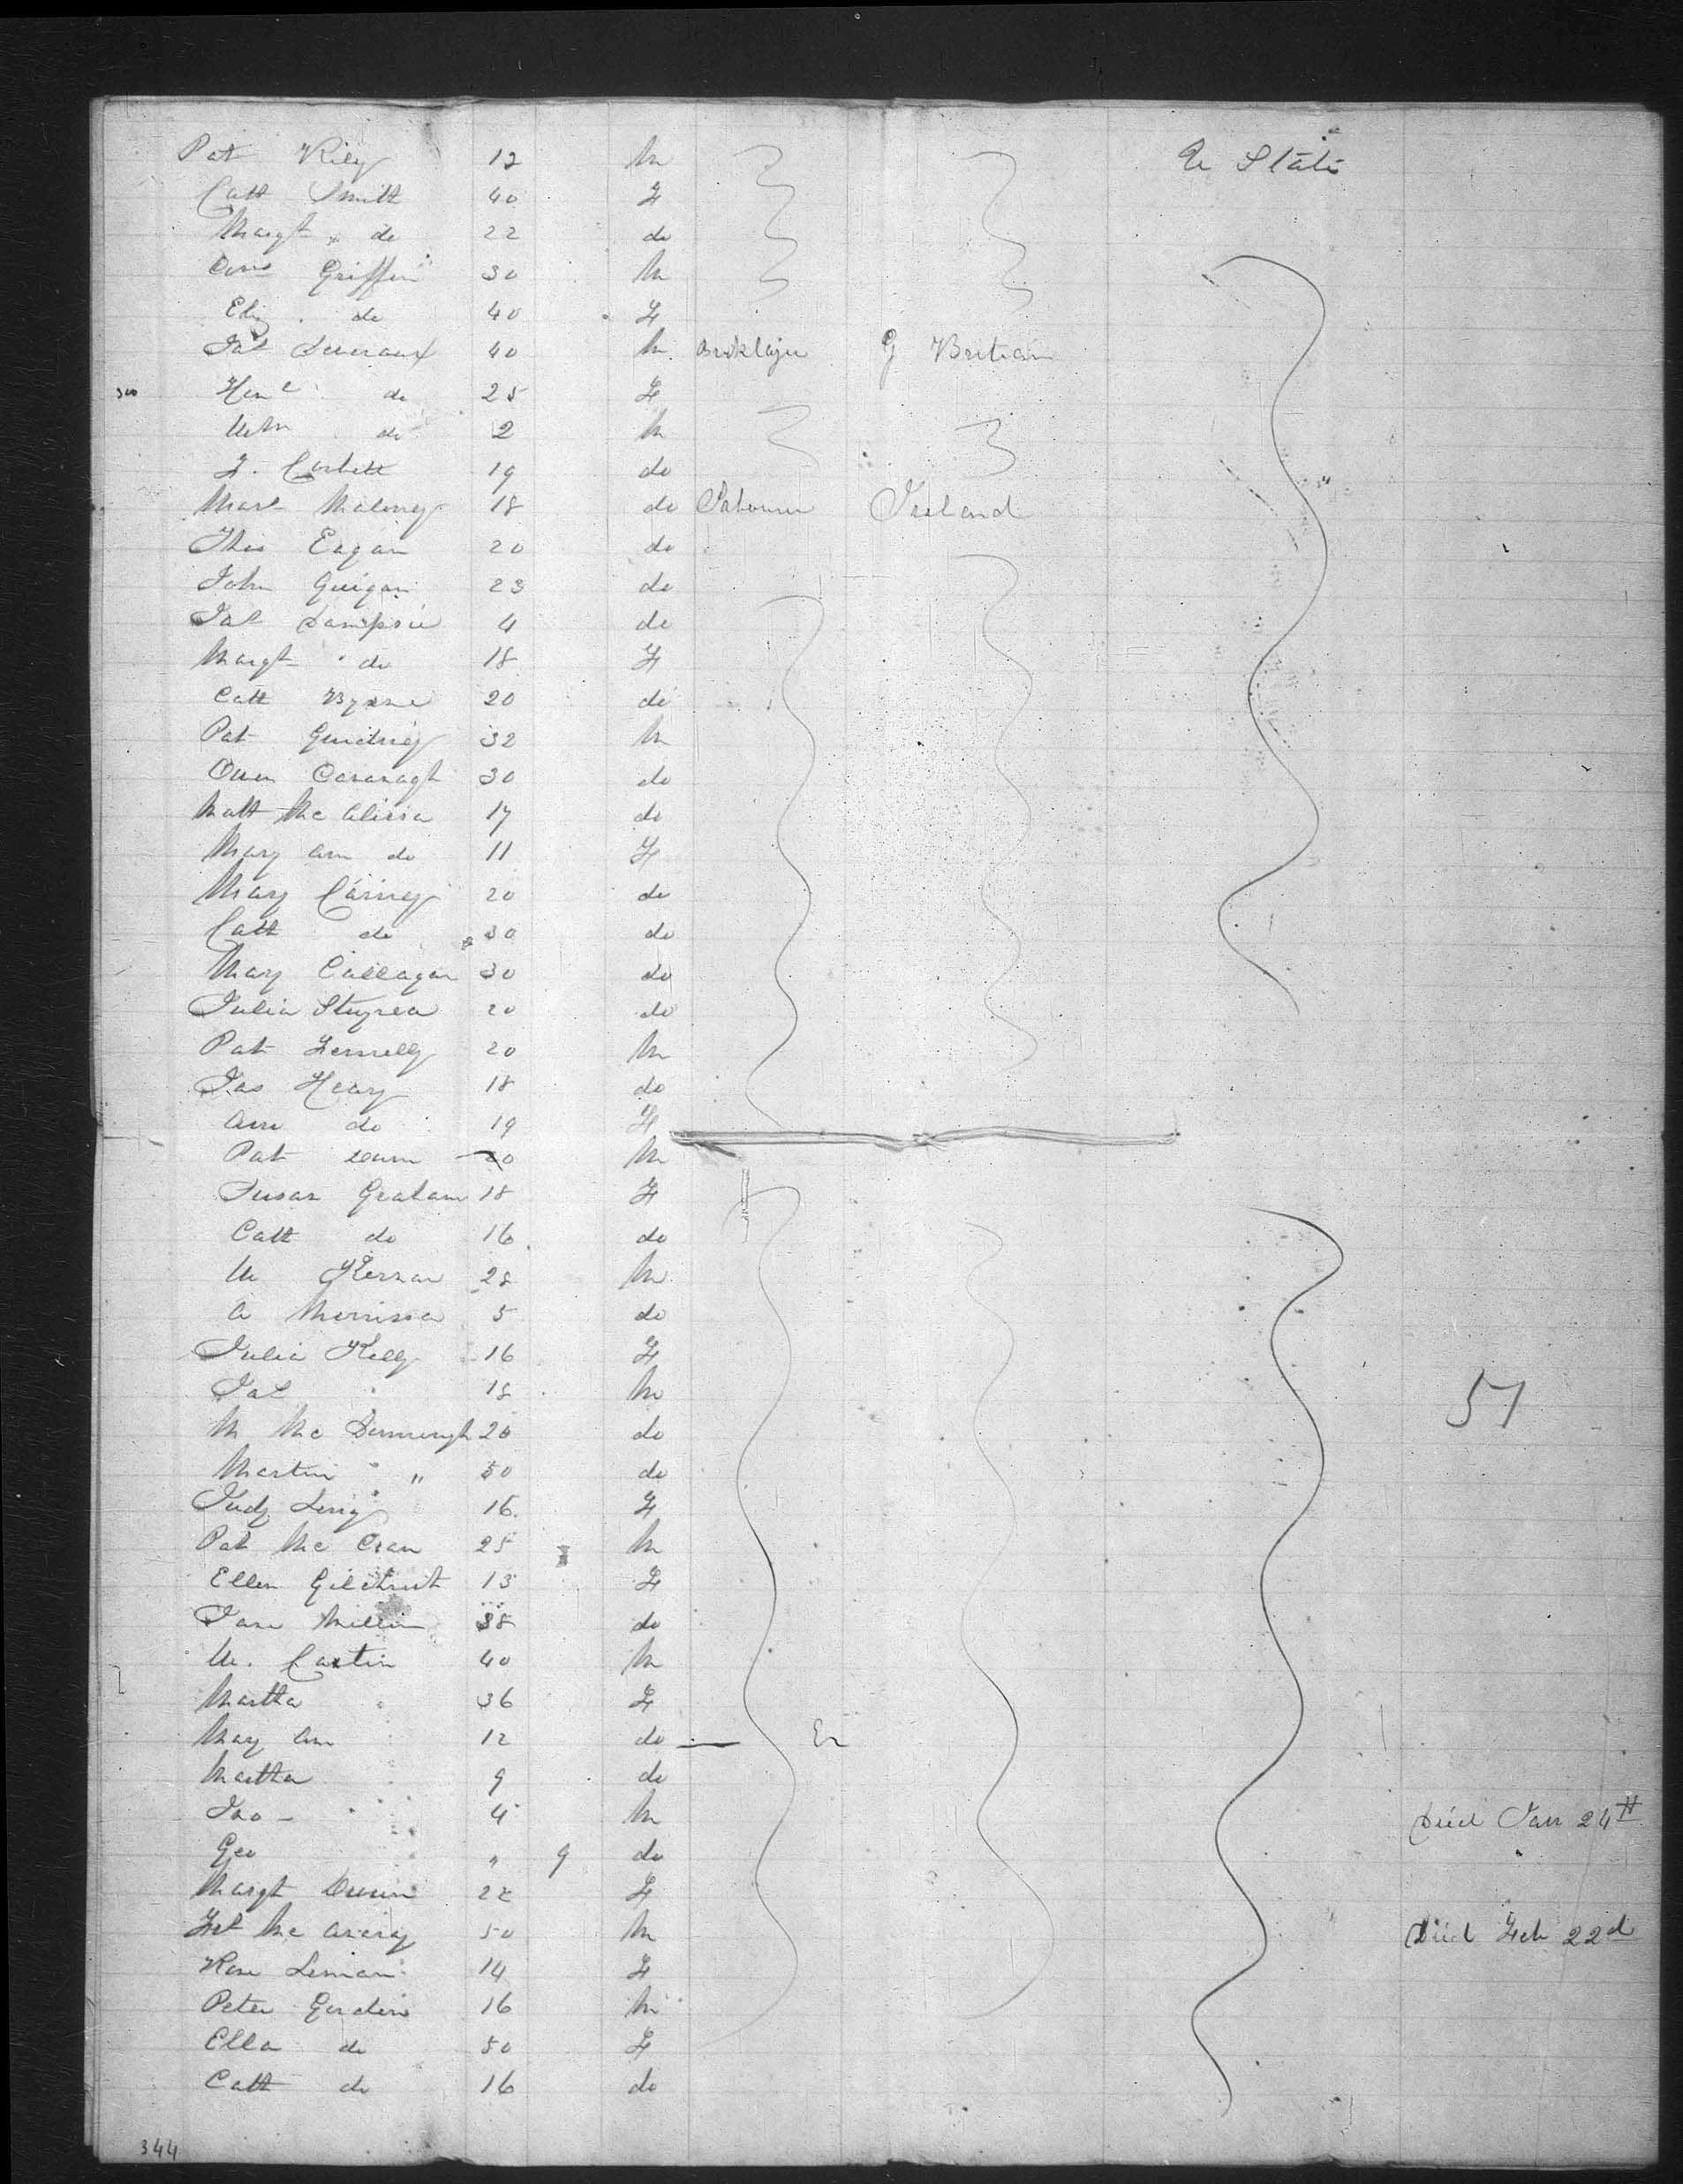 Pat Rily 12 M U States
Cath Smith 40 F
Margt do 22 do
Griffin 30 M
Eliz do 40 F
Jas Deveraux 40 M G Britian
300 do 25 F
Wm do 2 M
F. Corbett 19 do
Maloney 18 do Labourer Ireland
Thos Eagan 20 do
John Guigan 23 do
Jas Dampsie 4 do
Margt do 18 F
Cath Byrne 20 do
Pat 32 M
Owen Cavanagh 30 do
Matt Mc 17 do
Mary Ann do 11 F
Mary Carney 20 do
Cath do 30 do
Mary Callagan 30 do
Julia 20 do
Pat Fennelly 20 M
Jas Heary 18 do
Ann do 19 F
Pat 20 M
Susan Graham 18 F
Cath do 16 do
Kernan 28 M
A Morrissa 5 do
Julia Kelly 16 F
Jas " 18 M
M Mc 20 do
Martin " " 50 do
Judy 16 F
Pat Mc Cran 25 M
Ellen Gilchrist 13 F
Jane 38 do
W. Castin 40 M
Martha " 36 F
Mary Ann 12 do — En
Martha 9 do
Jno - " 4 M Died Jan 24th
Geo " 9 do
Margt 22 F
Mc 50 M Died Feb 22d
Rose 14 F
Peter Gordin 16 M
Ella do 50 F
Cath do 16 do
51
344